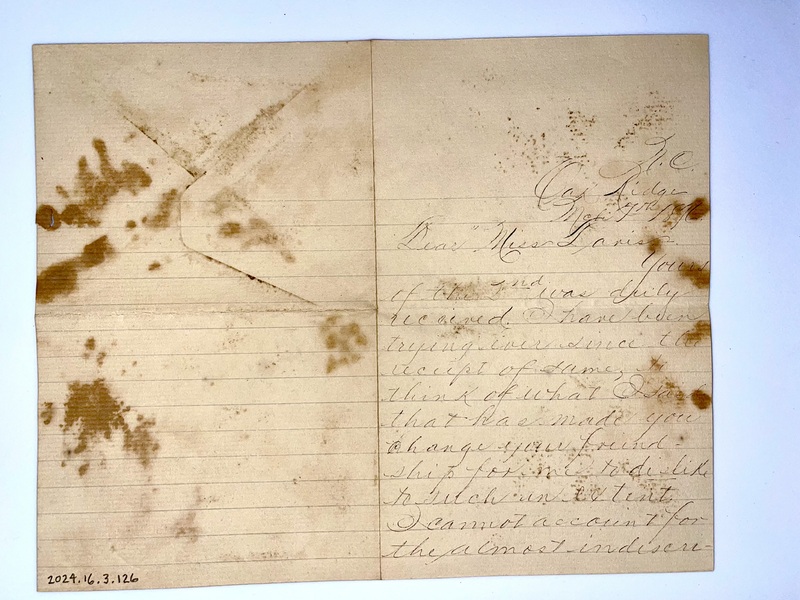 N.C.
Oak Ridge
Dear Miss Davis
Yours
of the 2nd was duly
received. I have been
trying ever since the
receipt of same, to
think of what I said
that has made you
change your friend-
ship for me to dislike
to such an extent.
I cannot account for
the almost indiscri-
2024.16.3.126